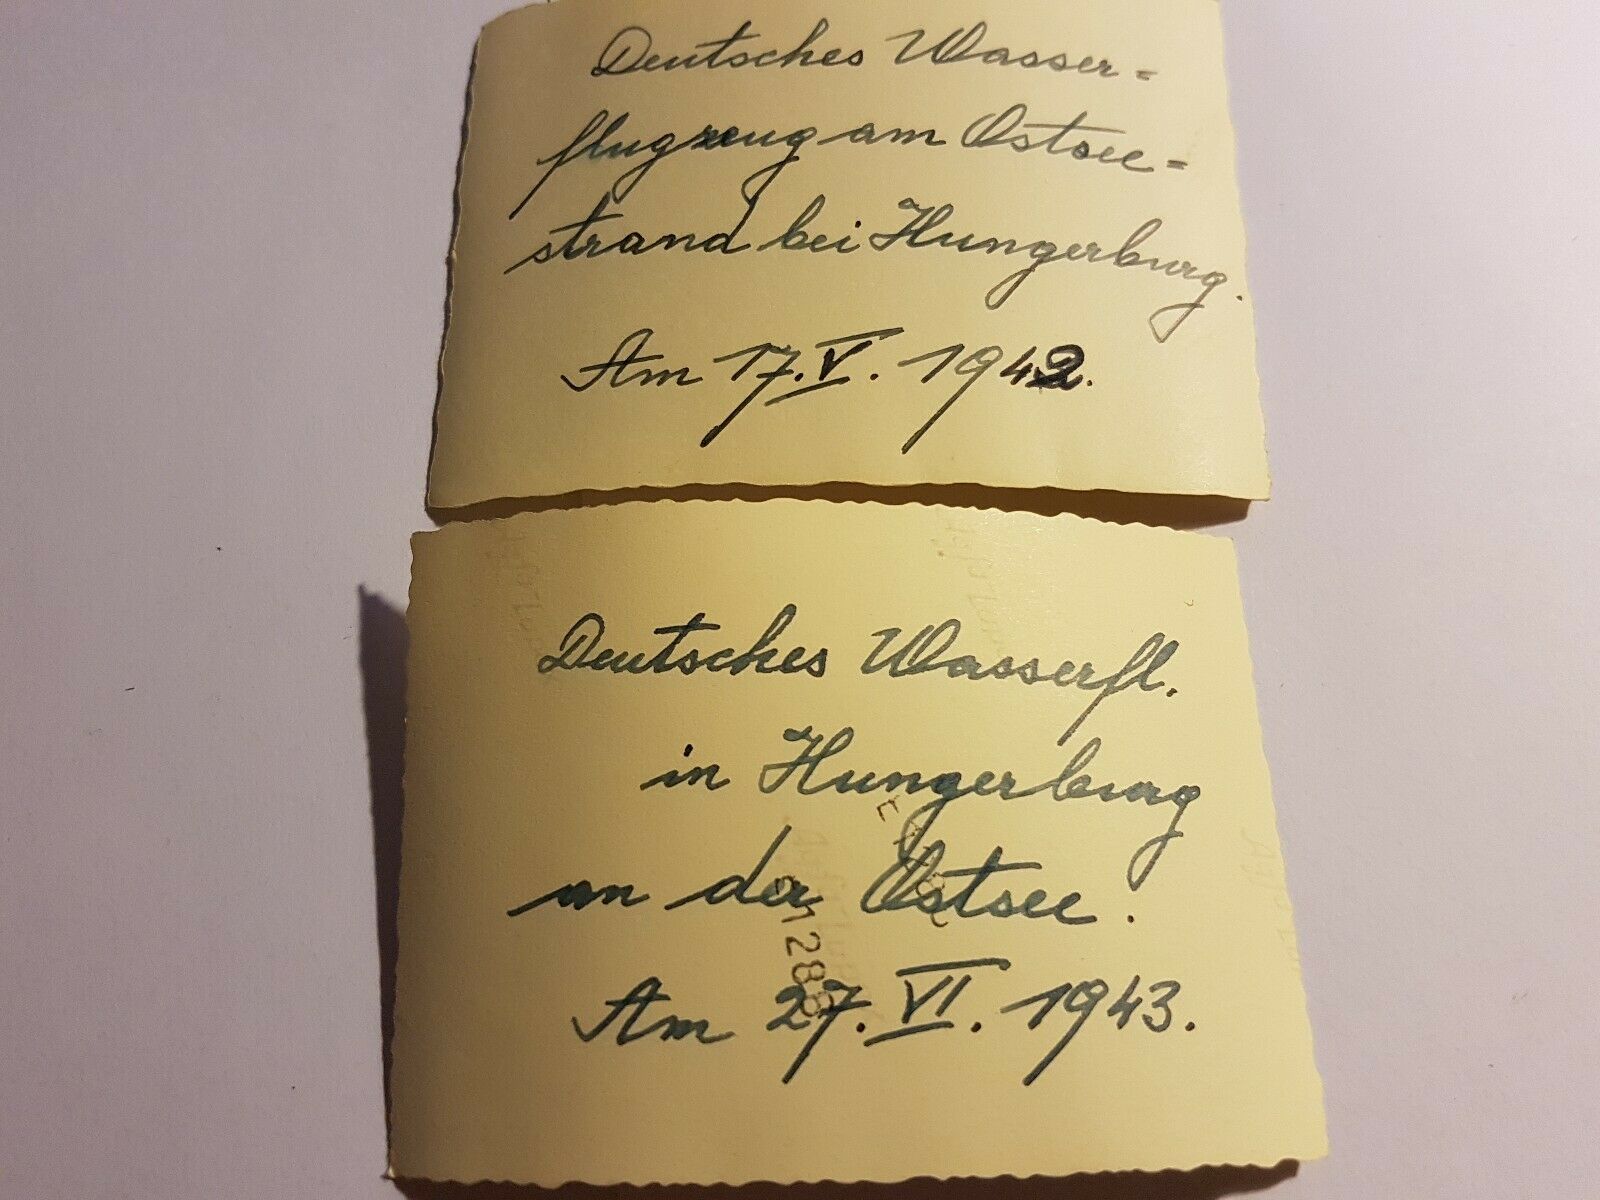 Deutsches Wasser=
flugzeug am Ostsee=
strand bei Hungerburg.
Am 17. V. 1942.
Deutsches Wasserfl.
in Hungerburg
an der Ostsee.
Am 27. VI. 1943.